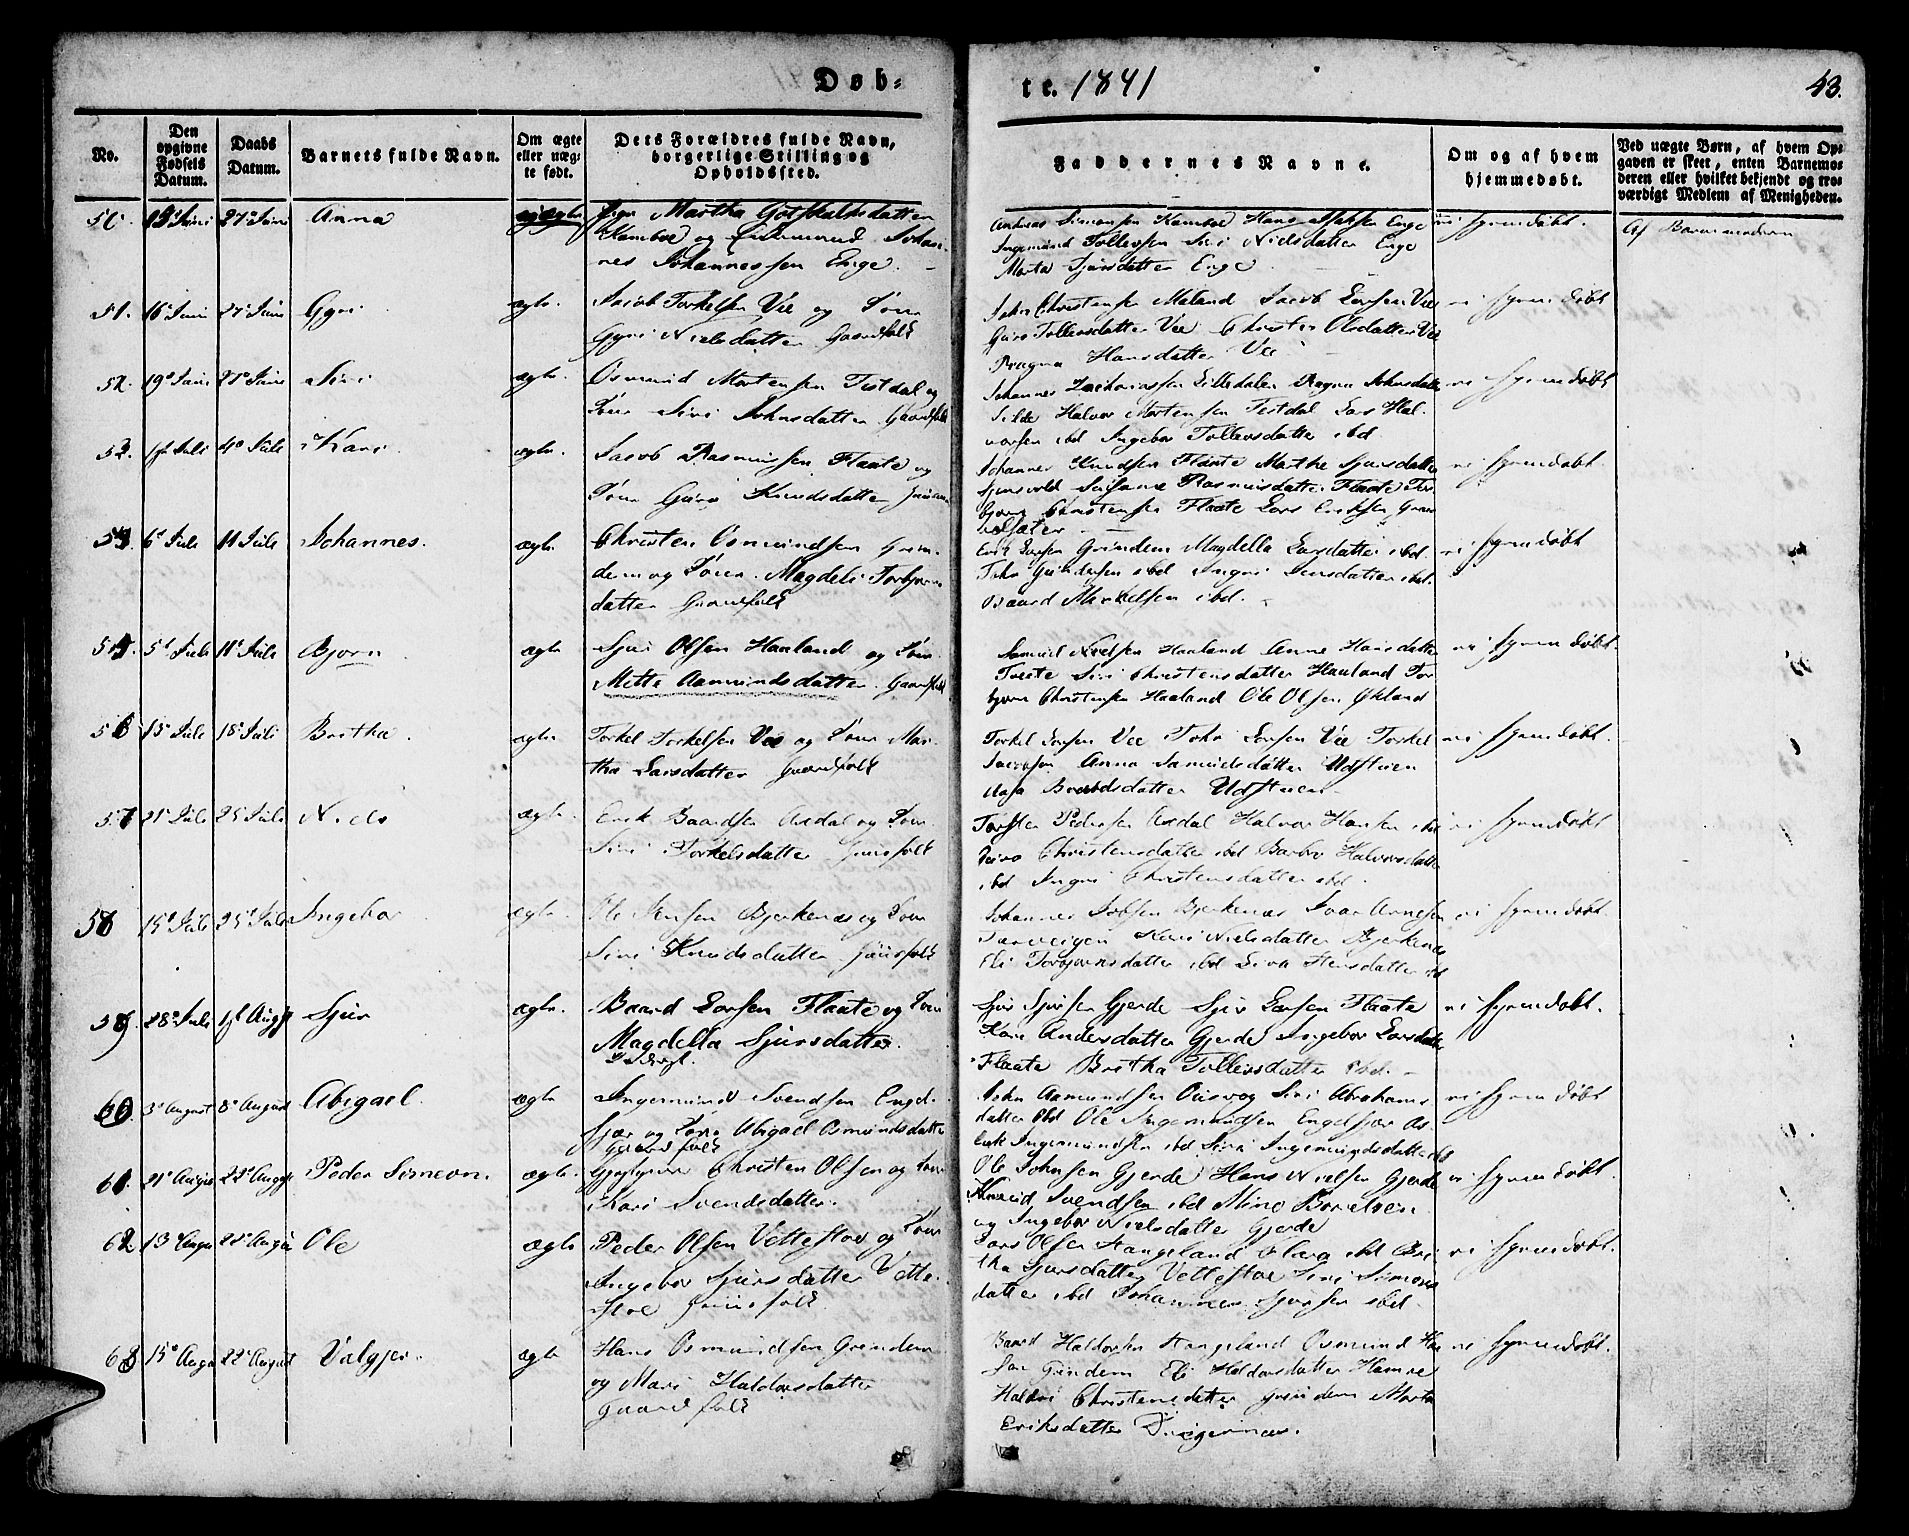 Døb=
te. 1841
43.
No.
Den opgivne Fødsels Datum.
Daabs Datum.
Barnets fulde Navn.
Om ægte eller uægte født.
Dets Forældres fulde Navn, borgerlige Stilling og Opholdssted.
Faddernes Navne.
Om og af hvem hjemmedøbt.
Ved uægte Børn, af hvem Opgaven er skeet, enten Barnemoderen eller hvilket bekjendt og troværdigt Medlem af Menigheden.
50. 27de Juni Anna
Martha Gotskalksdatter
og Johan-
nes Johannessen Enge.
Andreas Simonsen Hans Enge
Ingemund Tollevsen Siri Nielsdatter Enge
Marta Sjursdatter Enge
hjemdøbt.
Af Barnemoderen
51. 16de Juni 27de Juni Gyri ægte.
Jacob Torkelsen Vee og Kone
Gyri Nielsdatter Gaardfolk
John Christensen Maland Jacob Larsen Vee
Guro Tollevsdatter Vee Christi Olsdatter Vee
Ragna Hansdatter Vee
ei hjemdøbt
52. 19de Juni 27de Juni Siri ægte.
Osmund Mortensen Testdal og
Kone Siri Johnsdatter Gaardfolk
Johannes Zachariassen Lilledalen Ragna Johnsdatter
Silde Halvor Mortensen Testdal Lars Hal-
vorsen ibd Ingebor Tollevsdatter ibd.
ei hjemdøbt
53. 1st Juli 4de Juli Kari ægte.
Jacob Rasmussen Flaate og
Kone Guro Knudsdatter
Johannes Knudsen Flaate Marthe Sjursdatter
Susanne Rasmusdatter Flaate Tor-
bjørn Christensen Flaate Lars Eriksen
ei hjemdøbt.
54. 6te Juli 11 Juli Johannes. ægte.
Christen Osmundsen Grin-
dem og Kone Magdeli Torbjørns-
datter Gaardfolk
Erik Larsen Grindem Magdella Larsdatter ibd.
John ibd Ingri Jensdatter ibd.
Baard Mikkelsen ibd.
ei hjemdøbt
55. 5te Juli 11te Juli Bjørn ægte
Sjur Olsen Haaland og Kone
Mette Aamundsdatter. Gaardfolk
Samuel Nielsen Haaland Anne Hansdatter
Tveite Siri Christensdatter Haaland Tor-
bjørn Christensen Haaland Ole Olsen Økland
ei hjemdøbt.
56 15de Juli 18de Juli Britha. ægte.
Torkel Torkelsen Vee og Kone Mar-
tha Larsdatter Gaardfolk
Torkel Larsen Vee John Larsen Vee Torkel
Jacobsen Anna Samuelsdatter Udstuen
Aasa Baardsdatter Udstuen
ei hjemdøbt.
57 21de Juli 25 Juli Niels ægte.
Erik Baardsen Axdal og Kone
Siri Torkelsdatter Huusfolk
Torsten Pedersen Axdal Halvor Hansen ibd
Siva Christensdatter ibd Barbro Halvorsdatter
ibd Ingri Christensdatter ibd.
ei hjemdøbt
58 15de Juli 25de Juli Ingebor ægte.
Ole Jensen Bjerkenæs og Kone
Siri Knudsdatter Huusfolk
Johannes Bjerkenæs Ivar Arnesen
Kari Nielsdatter Bjerkenæs
Eli Torbjørnsdatter ibd Siva Jensdatter ibd
ei hjemdøbt
59. 28de Juli 1st Aug Sjur ægte.
Baard Larsen Flaate og Kone
Magdella Sjursdatter.
Sjur Sjursen Gjerde Sjur Larsen Flaate
Kari Andersdatter Gjerde Ingebor Larsdatter
Flaate Britha Tollevsdatter ibd.
ei hjemdøbt.
60. 3de August 8de August Abigael. ægte
Ingemund Svendsen Engel-
sjær og Kone Abigael Osmundsdatter
Gaardfolk
John Aamundsen Siri Abrahams-
datter ibd Ole Ingemundsen Engelsjær As-
lak Ingemundsen ibd Siri Ingemundsdatter ibd
ei hjemdøbt
61. 21de August 22de August Peder Simeon. ægte.
Christen Olsen og Kone
Kari Svendsdatter.
Ole Johnsen Gjerde Hans Nielsen Gjerde
Knud Svendsen ibd
og Ingebor Nielsdatter Gjerde
ei hjemdøbt.
62 13de August 22de August Ole ægte
Peder Olsen Vettestøe og Kone
Ingebor Sjursdatter Vette-
støe Huusfolk
Lars Olsen Hangeland ibd Bri-
tha Sjursdatter Vettestøe Siri Simons-
datter ibd Johannes Sjursen ibd.
ei hjemdøbt.
63 15de August 22de August Valgjer. ægte
Hans Osmundsen Grindem
og Mari Haldorsdatter
Gaardfolk
Baard Haldorsen Hangeland Osmund Han-
sen Grindem Eli Haldorsdatter Hamre
Christensdatter Grindem Marta
Eriksdatter
ei hjemdøbt.